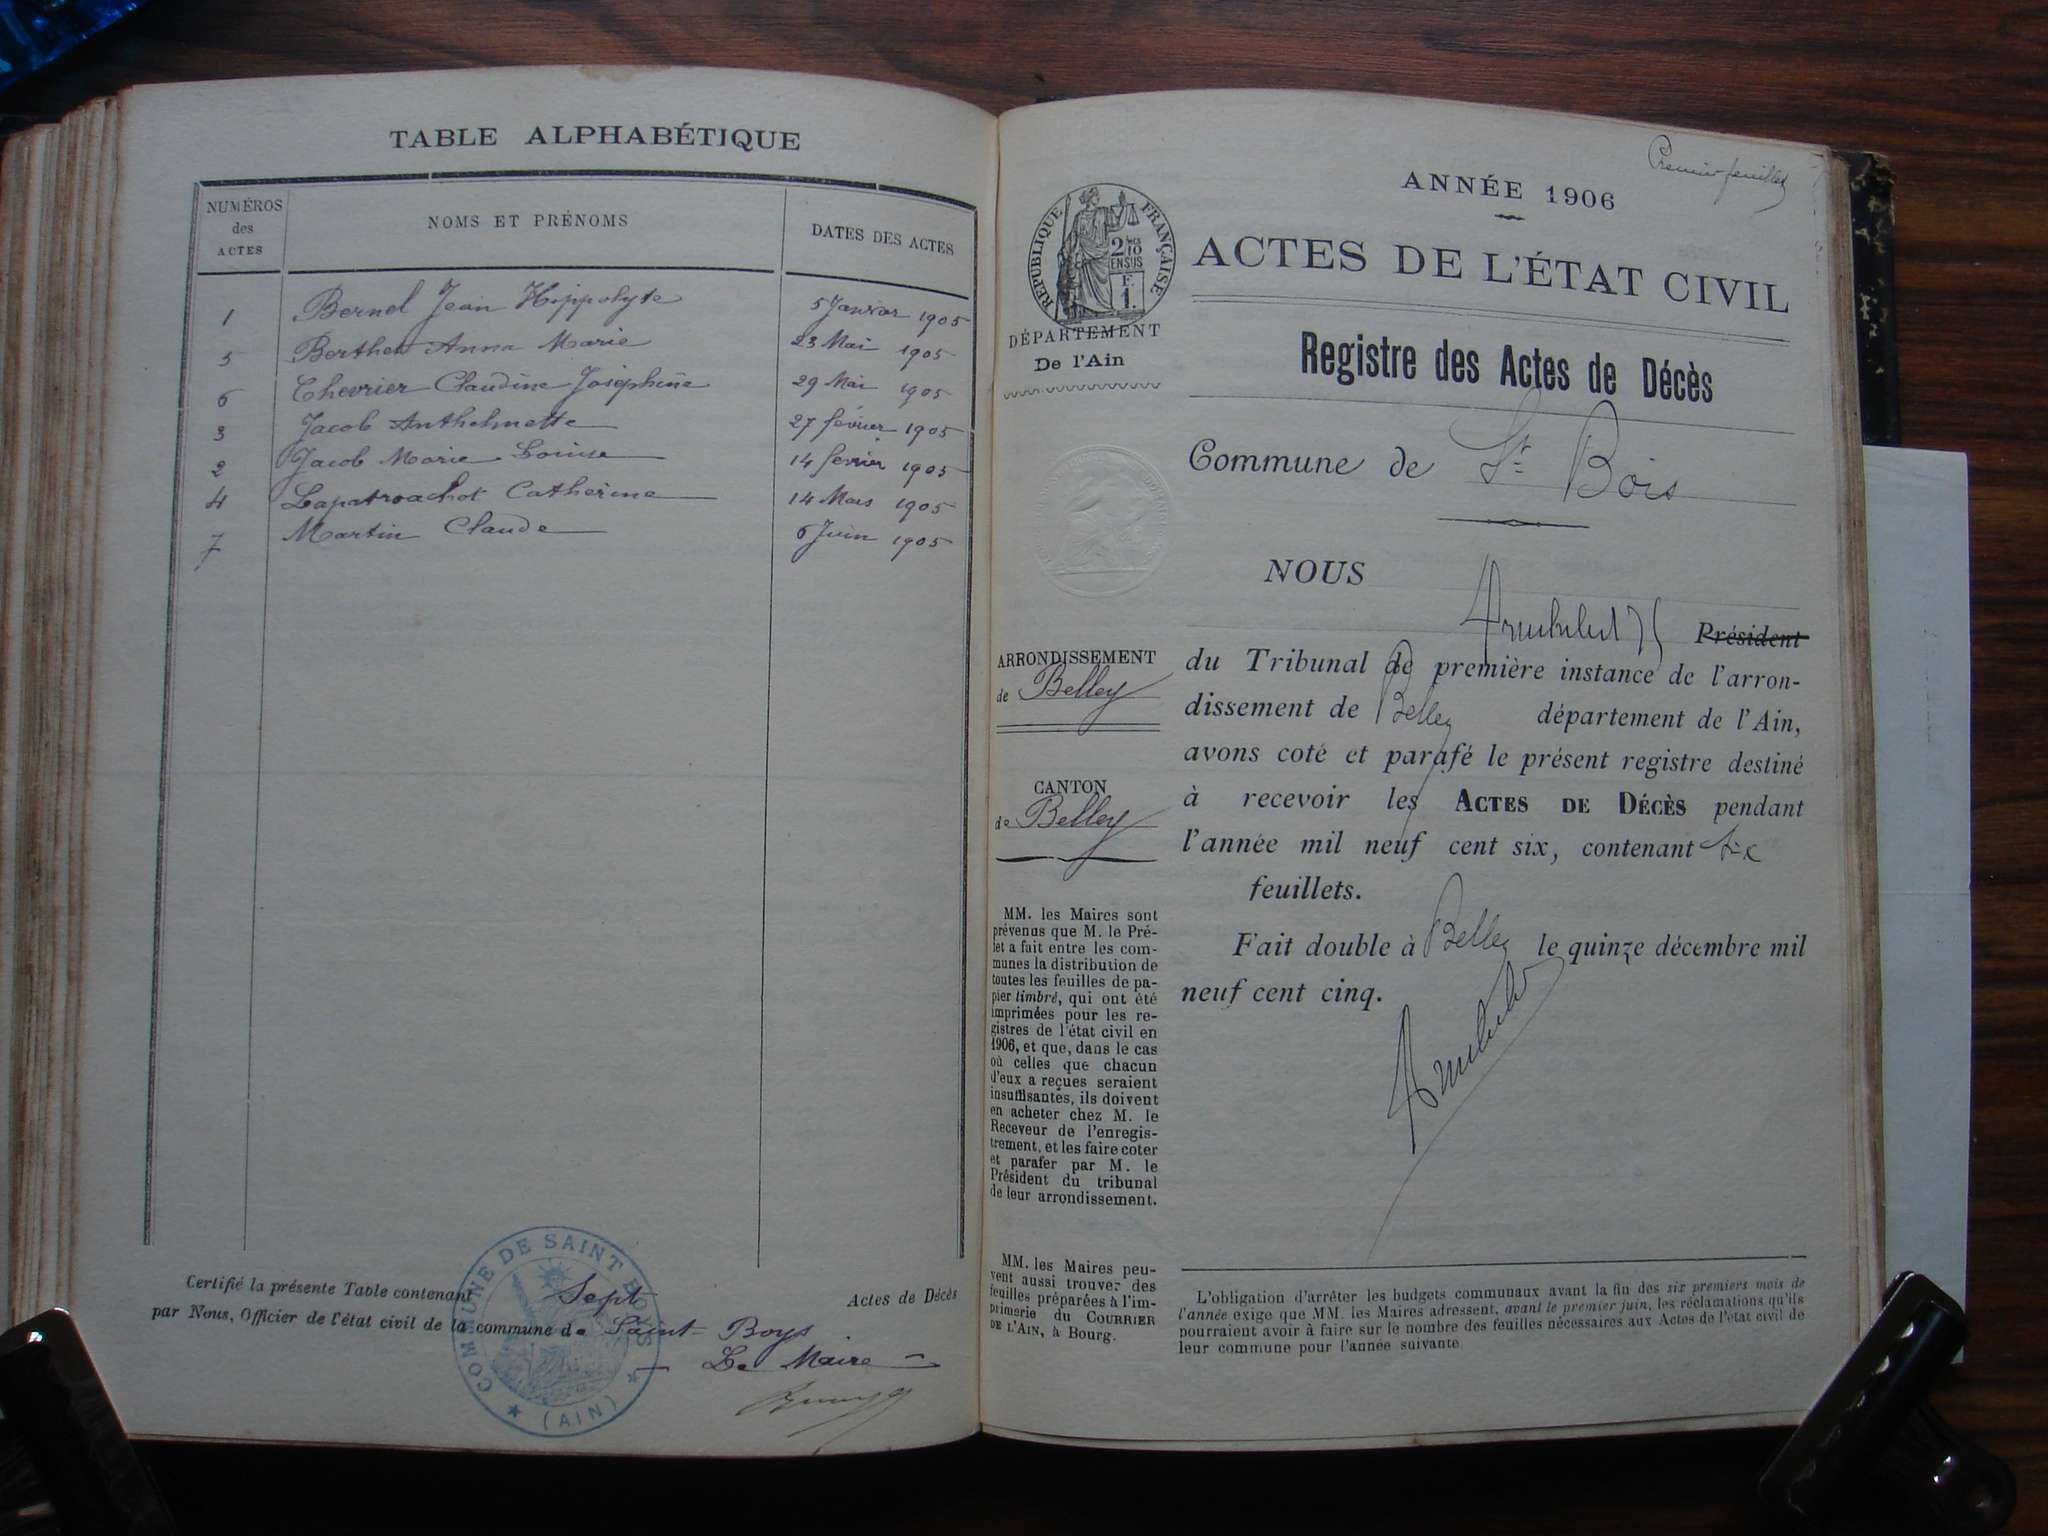 TABLE ALPHABÉTIQUE
NUMÉROS des ACTES
NOMS ET PRÉNOMS
DATES DES ACTES
1 Bernel Jean Hippolyte 5 Janvier 1905
5 Berthet Anna Marie 23 Mai 1905
6 Chevrier Claudine Joséphine 29 Mai 1905
3 Jacob Anthelmette 27 février 1905
2 Jacob Marie Louise 14 fevrier 1905
4 Lapatroachot Catherine 14 Mars 1905
7 Martin Claude 6 Juin 1905
Certifié la présente Table contenant Sept Actes de Décès
par Nous, Officier de l'état civil de la commune de Saint-Boys
Le Maire
COMMUNE DE SAINT BOYS
(AIN)
Premier feuillet
ANNÉE 1906
RÉPUBLIQUE FRANÇAISE
ACTES DE L'ÉTAT CIVIL
DÉPARTEMENT
De l'Ain
Registre des Actes de Décès
Commune de St Bois
NOUS
Président
du Tribunal de première instance de l'arron-
dissement de Belley département de l'Ain,
avons coté et parafé le présent registre destiné
à recevoir les ACTES DE DÉCÈS pendant
l'année mil neuf cent six, contenant six
feuillets.
Fait double à Belley le quinze décembre mil
neuf cent cinq.
ARRONDISSEMENT
de Belley
CANTON
de Belley
MM. les Maires sont
prévenus que M. le Pré-
fet a fait entre les com-
munes la distribution de
toutes les feuilles de pa-
pier timbré, qui ont été
imprimées pour les re-
gistres de l'état civil en
1906, et que, dans le cas
où celles que chacun
d'eux a reçues seraient
insuffisantes, ils doivent
en acheter chez M. le
Receveur de l'enregis-
trement, et les faire coter
et parafer par M. le
Président du tribunal
de leur arrondissement.
MM. les Maires peu-
vent aussi trouver des
feuilles préparées à l'im-
primerie du COURRIER
DE L'AIN, à Bourg.
L'obligation d'arrêter les budgets communaux avant la fin des six premiers mois de
l'année exige que MM. les Maires adressent, avant le premier juin, les réclamations qu'ils
pourraient avoir à faire sur le nombre des feuilles nécessaires aux Actes de l'état civil de
leur commune pour l'année suivante.